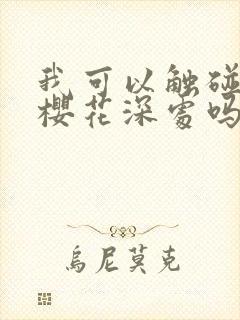 我可以触碰
樱花深处吗
乌尼莫克